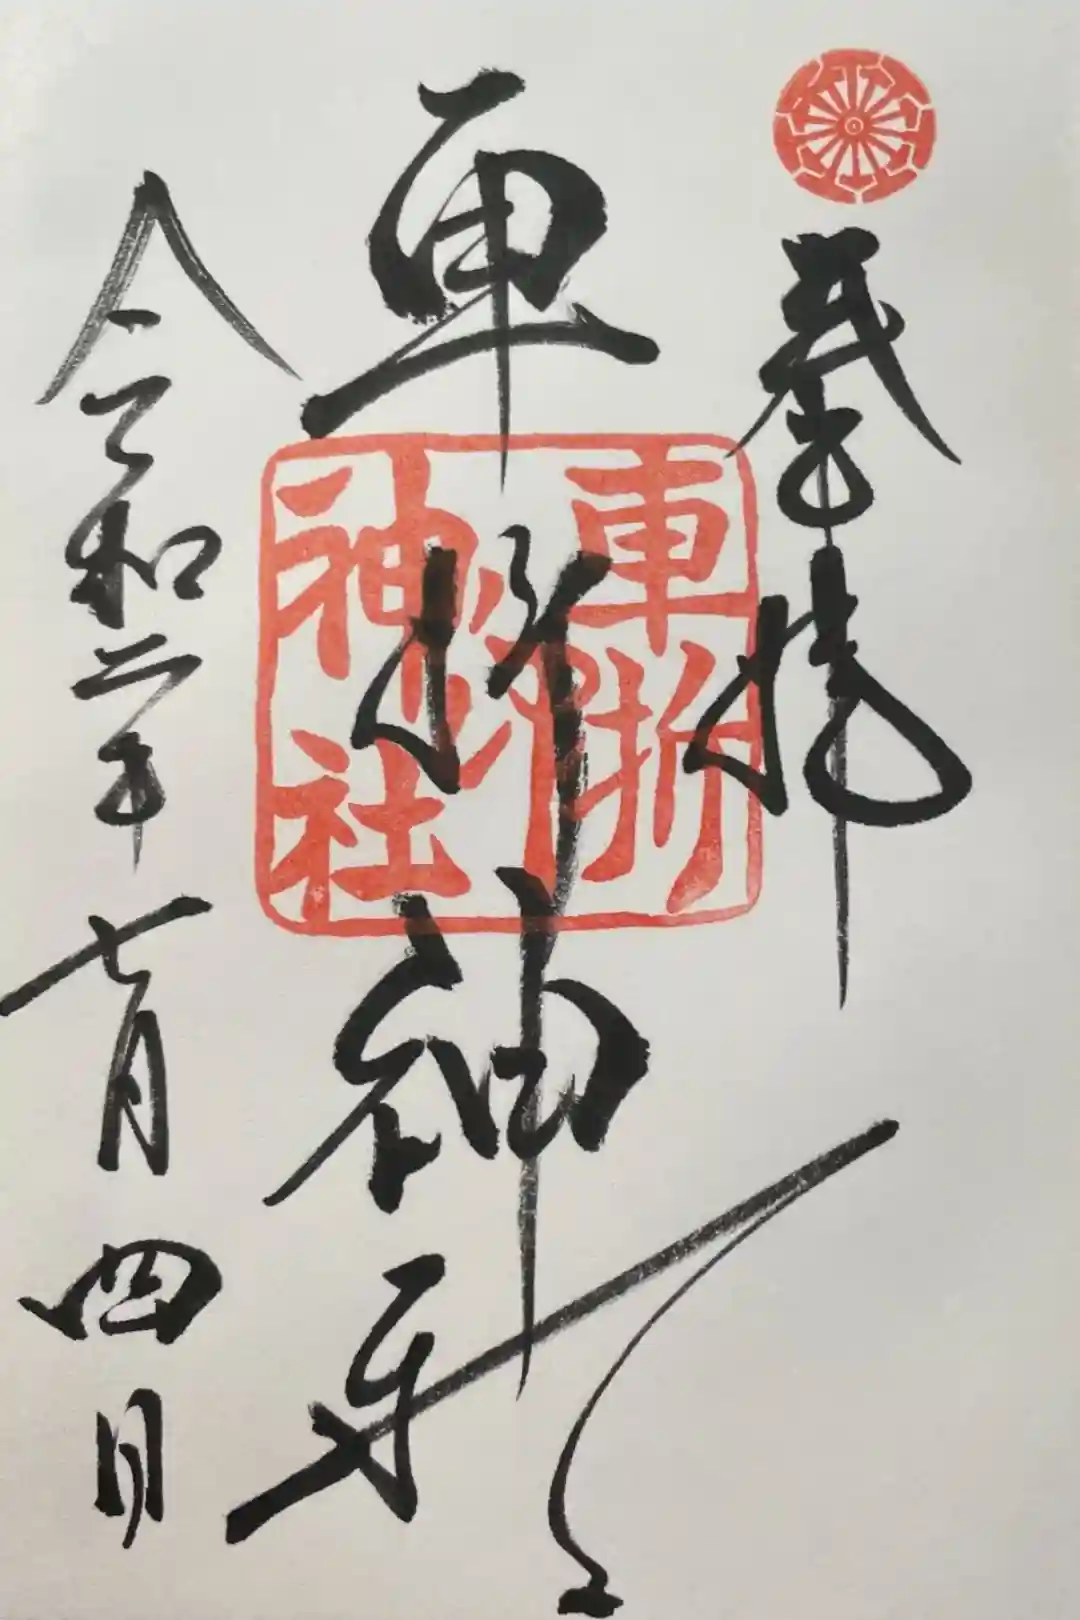 奉拝
車折神社
車折
神社
令和二年七月四日